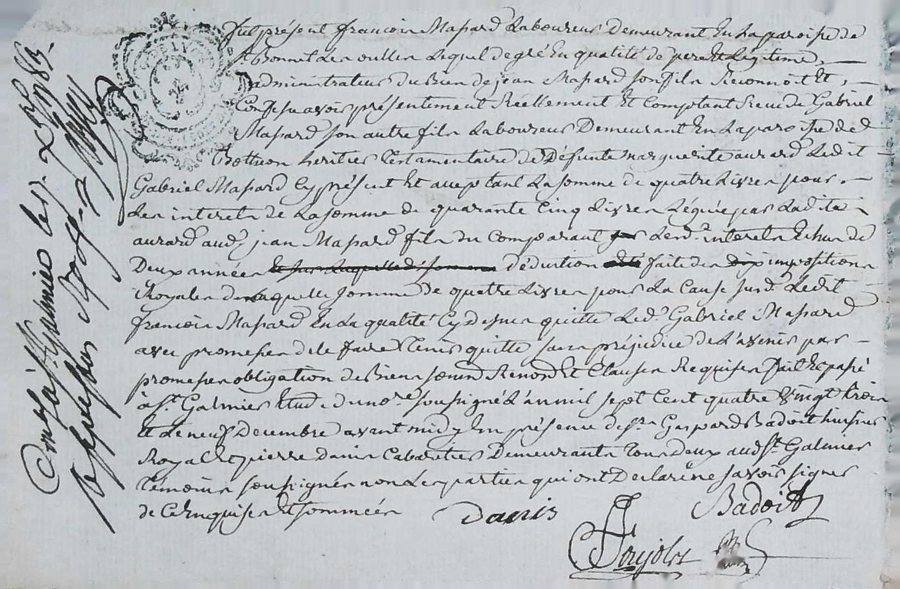 Fut présent François Mapard Laboureur Demeurant En La paroisse de
St bonnet Les oulles Lequel de gré En qualité de pere Et Légitime
administrateur du Bien de jean Mapard son fils Reconnoit Et
Confesse avoir présentement Réellement Et Comptant Receu de Gabriel
Mapard son autre fils Laboureur Demeurant En La paroisse de
heritier testamentaire de Défunte marguerite aurard Ledit
Gabriel Mapard Cy présent Et acceptant La somme de quatre Livres pour
Les interets de La somme de quarante Cinq Livres Léguée par Ladite
aurard aud. jean Mapard fils du Comparant Lesd. interets Echus de
Deux années déduction faite des impositions
Royales de Laquelle somme de quatre Livres pour La Cause susd. Ledit
françois Mapard En La qualité Cy dessus quitte Led. Gabriel Mapard
avec promesse de Le faire tenir quitte sans préjudice de L'avenir par
promesses obligation de Biens Renond. Et Clauses Requises fait Et passé
à St. Galmier Etude du no.re soussigné L'an mil sept Cent quatre Vingt trois
Et Le neuf Decembre avant midy En présence de Sr. Gaspard Badoit huissier
Royal Et pierre Danis Cabaretier Demeurants tous Deux aud. St. Galmier
témoins soussignés non Les parties qui ont Déclaré ne savoir signer
de Ce Enquises Et sommées
Danis
Badoit
Conlé à St Galmier le 17 Xbre 1783